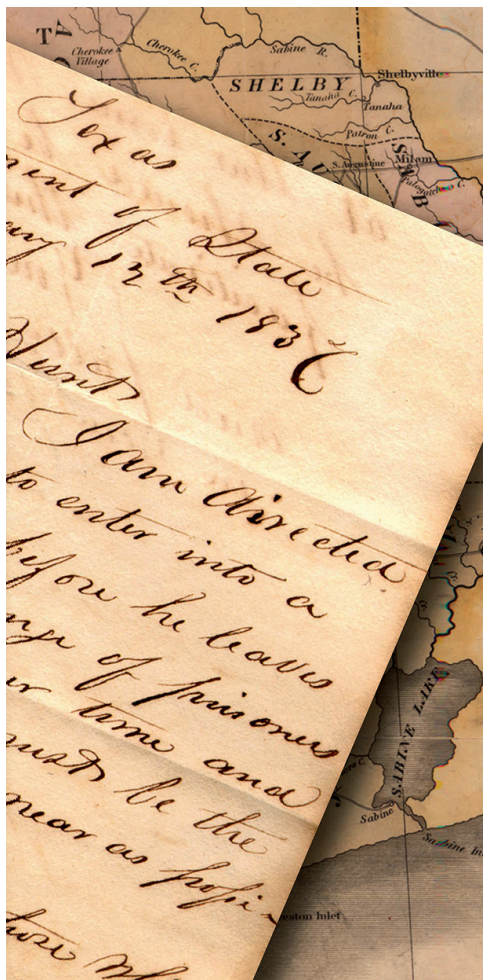 T
Cherokee
Village
Cherokee C.
Sabine R.
Shelbyville
SHELBY
Tanaha C.
Tanaha
Patron C.
S. AU
S. Augustine
Milam
SAB
Texas
ment of State
12th 1837
Hunt
I am directed
to enter into a
before he leaves
nge of prisoners
time and
must be the
near as possi-
SABINE LAKE
Sabine
Sabine In
eston Inlet